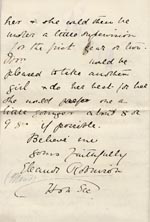 her & she could then be
under a little supervision
for the first year or two.
would be
pleased to take another
girl & do her best for her
She would prefer one a
little younger about 8 or
9 if possible.
Believe me
Yours faithfully
Eleanor Robinson
Hon Sec